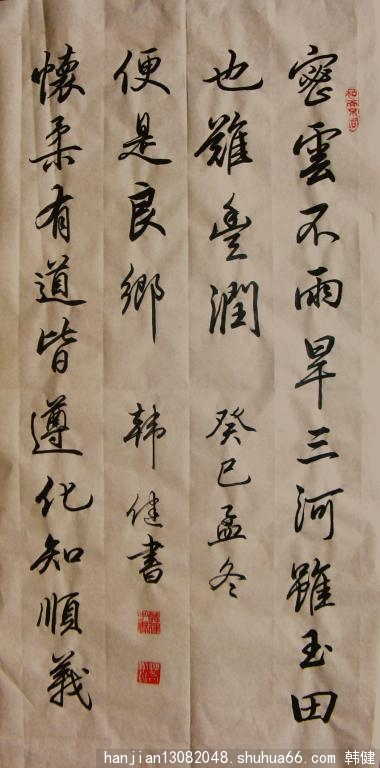 密雲不雨旱三河雖玉田
也難豐潤
癸巳孟冬
懷柔有道皆遵化知順義
便是良鄉
韩健書
hanjian13082048.shuhua66.com 韩健